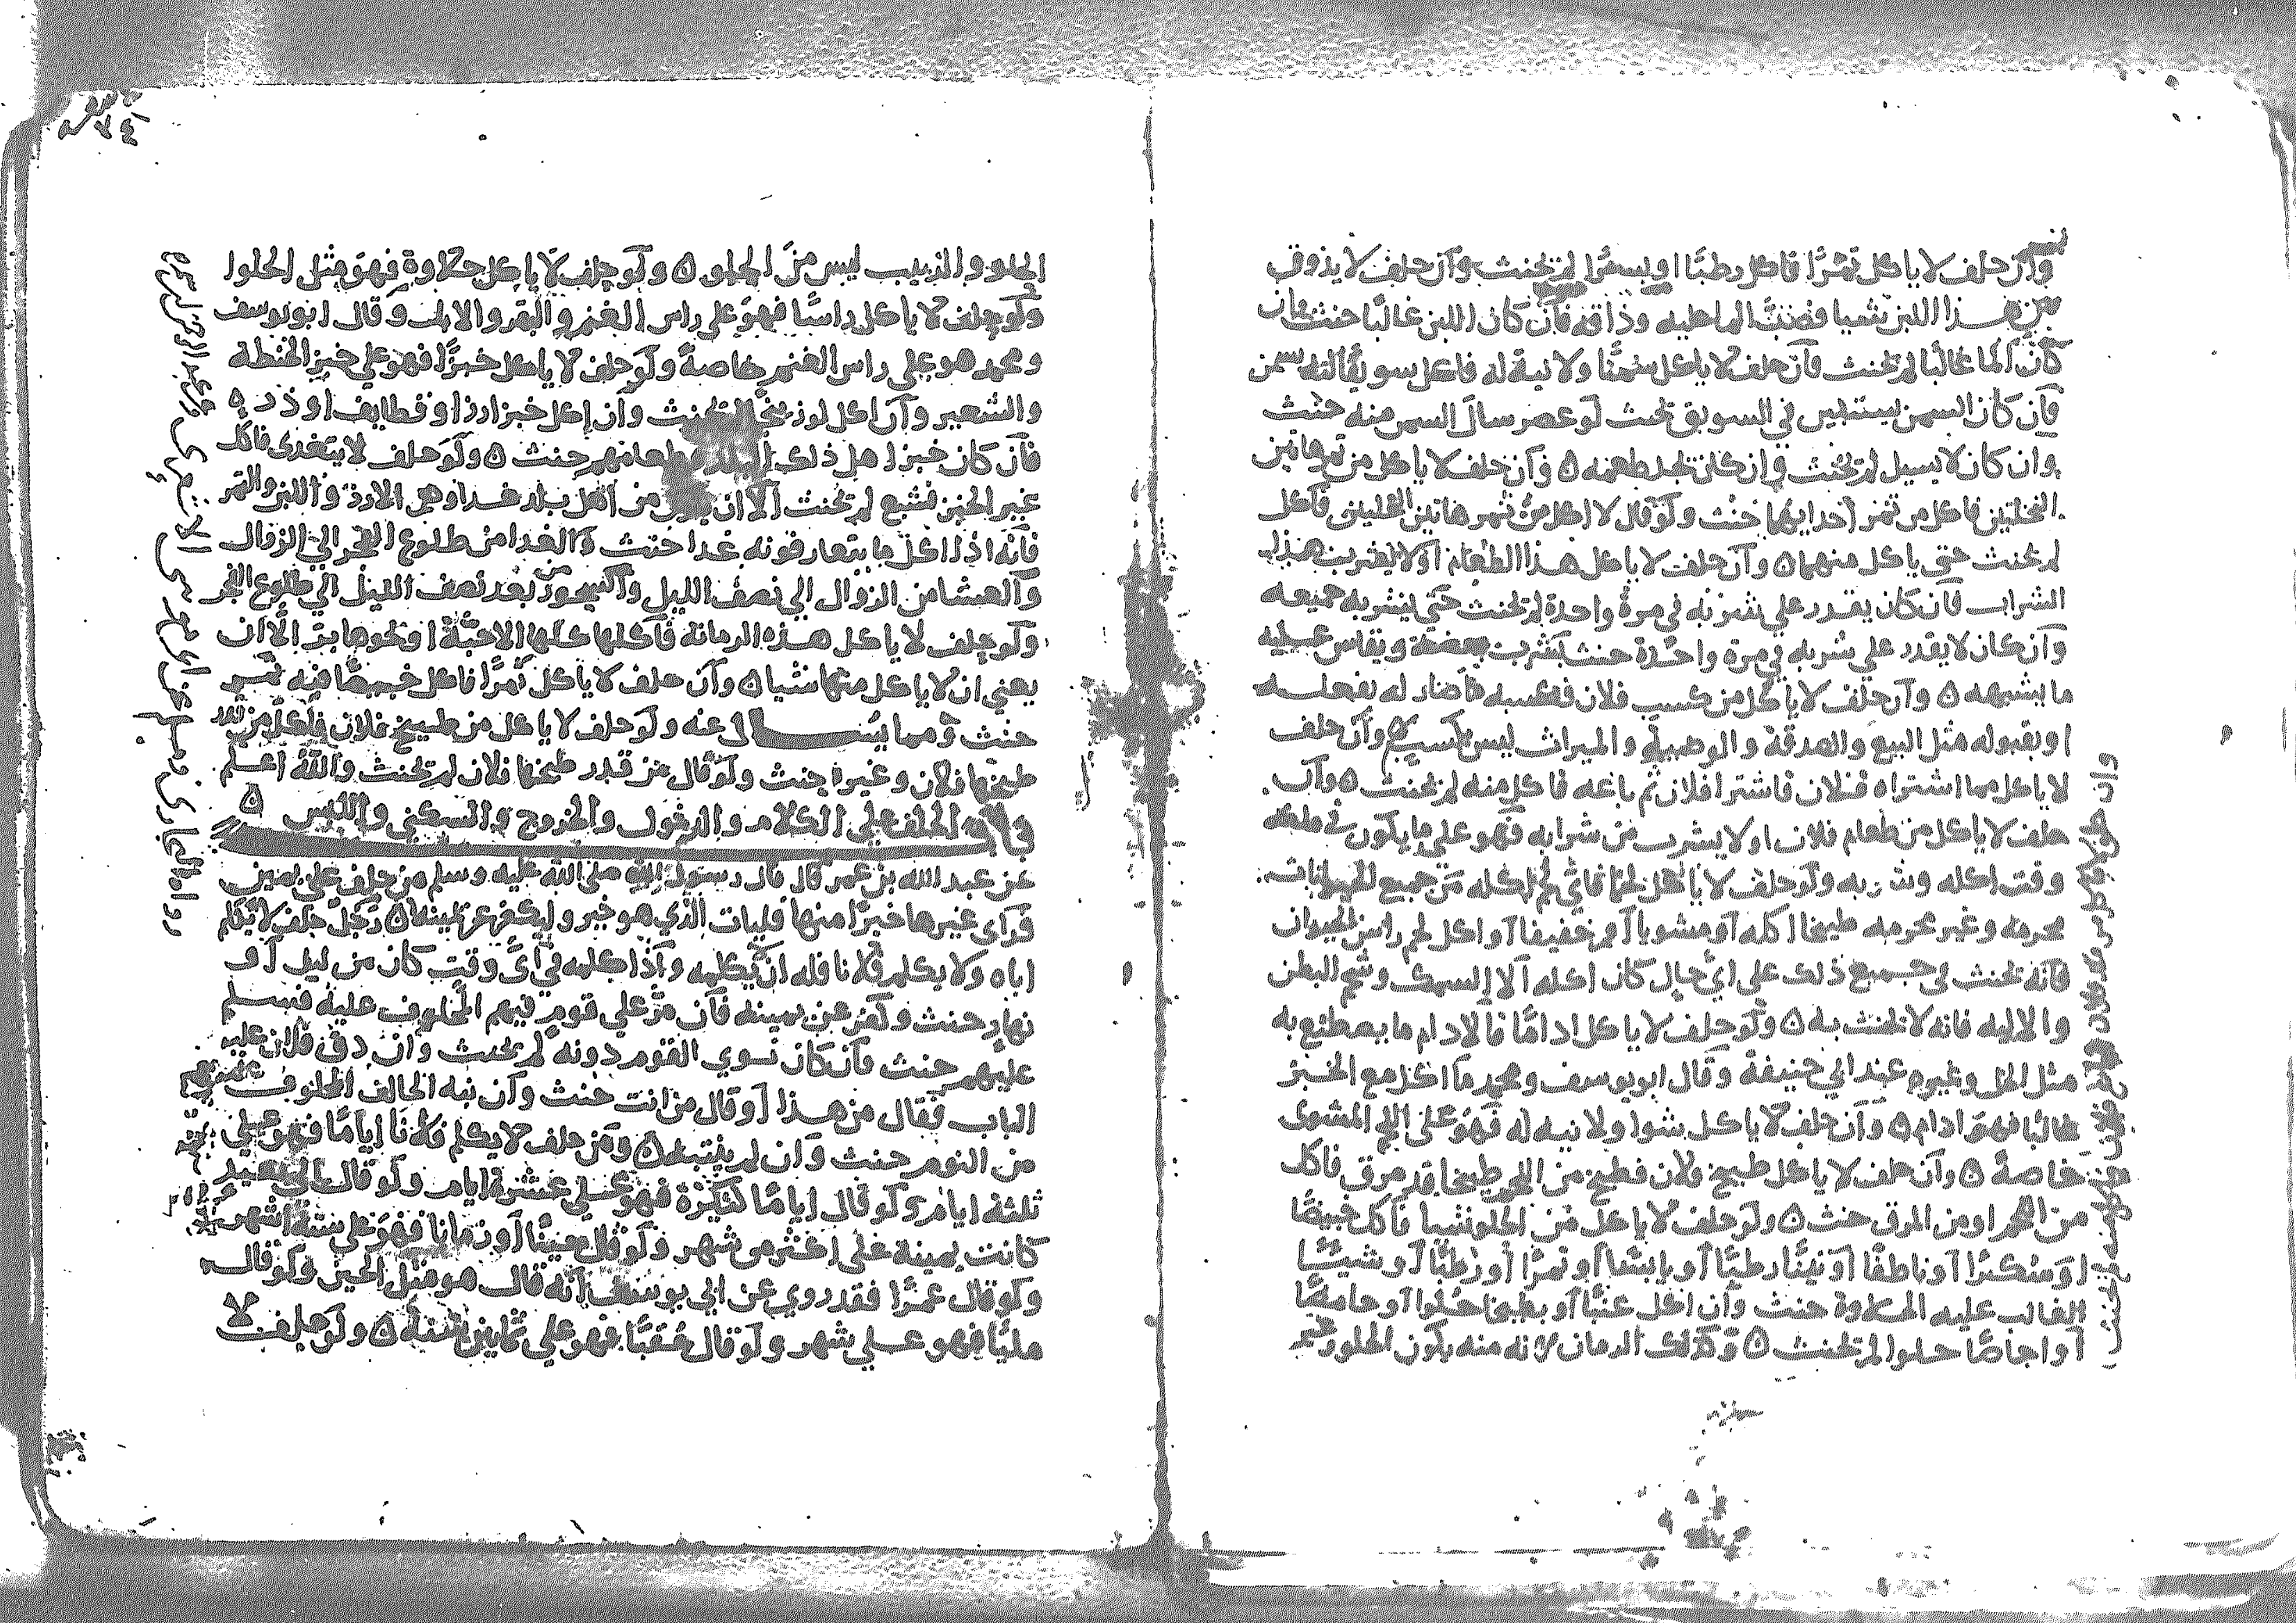 وان حلف لا ياكل تمرا فاكل رطبا او بسرا لم يحنث وان حلف لا يذوق
من هذا اللبن شيا فصب الما عليه وذاقه فان كان اللبن غالبا حنث فان
كان الما غالبا لم يحنث فان حلف لا ياكل سمنا ولا نية له فاكل سويقا لته بسمن
فان كان السمن يستبين في السويق بحيث لو عصر سال السمن منه حنث
وان كان لا يسيل لم يحنث وان كان يجد طعمه ٥ وان حلف لا ياكل من ثمر هاتين
النخلتين فاكل من ثمر احدايهما حنث ولو قال لا اكل من ثمر هاتين النخلتين فاكل
لم يحنث حتى ياكل منهما ٥ وان حلف لا ياكل هذا الطعام او لا يشرب هذا
الشراب فان كان يقدر علي شربه في مرة واحدة لم يحنث حتى يشربه جميعه
وان كان لا يقدر علي شربه في مرة واحدة حنث بشرب بعضه ويقاس عليه
ما يشبهه ٥ وان حلف لا ياكل من كسب فلان فكسبه ما صار له بفعله
او بقبوله مثل البيع والصدقة والوصية والميراث ليس بكسب وان حلف
لا ياكل مما اشتراه فلان فاشترا فلان ثم باعه فاكل منه لم يحنث ٥ وان
حلف لا ياكل من طعام فلان او لا يشرب من شرابه فهو علي ما يكون في ملكه
وقت اكله وشربه ولو حلف لا ياكل لحما فاي لحم اكله من جميع الحيوانات
محرمه وغير محرمه طبيخا اكله او مشويا او اكل لحم راس الحيوان
فانه يحنث في جميع ذلك علي اي حال كان اكله الا السمك وشحم البطن
والاليه فانه لا يحنث به ٥ ولو حلف لا ياكل اداما فالادام ما يصطبغ به
مثل الخل وغيره عند ابي حنيفة وقال ابو يوسف ومحمد ما اكل مع الخبز
غالبا فهو ادام ٥ وان حلف لا ياكل شوا ولا نيه له فهو على اللحم المشوى
خاصة ٥ وان حلف لا ياكل طبيخ فلان فطبخ من اللحم طبيخا بمرق فاكل
من اللحم او من المرق حنث ٥ ولو حلف لا ياكل من الحلو شيا فاكل خبيصا
او سكرا او ناطفا او تينا رطبا او يابسا او تمرا او رطبا او شيئا
الغالب عليه الحلاوة حنث وان اكل عنبا او بطيخا حلوا او حامضا
او اجاصا حلوا لم يحنث ٥ وكذلك الرمان لانه منه يكون الحلو وغير
الحلو والزبيب ليس من الحلو ٥ ولو حلف لا ياكل حلاوة فهو مثل الحلوا
ولو حلف لا ياكل راسا فهو علي راس الغنم والبقر والابل وقال ابو يوسف
ومحمد هو علي راس الغنم خاصة ولو حلف لا ياكل خبزا فهو علي خبز الحنطة
والشعير وان اكل لوزينجا لم يحنث وان اكل خبز ارز او قطايف او ذرة
فان كان خبز اهل ذلك البلد وطعامهم حنث ٥ ولو حلف لا يتغدى فاكل
غير الخبز فشبع لم يحنث الا ان يكون من اهل بلد غداوهم الارز واللبن والتمر
فانه اذا اكل ما يتعارفونه غدا حنث والغدا من طلوع الفجر الي الزوال
والعشا من الزوال الي نصف الليل والسحور من بعد نصف الليل الي طلوع الفجر
ولو حلف لا ياكل هذه الرمانة فاكلها كلها الا حبة او نحوها بر الا ان
يعني ان لا ياكل منها شيا ٥ وان حلف لا ياكل تمرا فاكل خبيصا فيه تمر
حنث ومما يسال عنه ولو حلف لا ياكل من طبيخ فلان فاكل من قدر
طبخها فلان وغيره حنث ولو قال من قدر طبخها فلان لم يحنث والله اعلم
باب الحلف علي الكلام والدخول والخروج والسكني واللبس ٥
عن عبد الله بن عمر قال قال رسول الله صلى الله عليه وسلم من حلف علي يمين
فراى غيرها خيرا منها فليات الذي هو خير وليكفر عن يمينه ٥ رجل حلف لا يكلم
اباه ولا يكلم فلانا فله ان يكلمه واذا كلمه في اي وقت كان من ليل او
نهار حنث وكفر عن يمينه فان مر علي قوم فيهم المحلوف عليه فسلم
عليهم حنث فان كان نوي القوم دونه لم يحنث وان دق فلان عليه
الباب فقال من هذا او قال من انت حنث وان نبه الحالف المحلوف عليه
من النوم حنث وان لم ينتبه ٥ ومن حلف لا يكلم فلانا اياما فهو علي
ثلثة ايام ولو قال اياما كثيرة فهو علي عشرة ايام ولو قال الي بعيد
كانت يمينه على اكثر من شهر ولو قال حينا او زمانا فهو علي ستة اشهر
ولو قال عمرا فقد روي عن ابي يوسف انه قال هو مثل الحين ولو قال
مليا فهو علي شهر ولو قال حقبا فهو علي ثمانين سنة ٥ ولو حلف لا